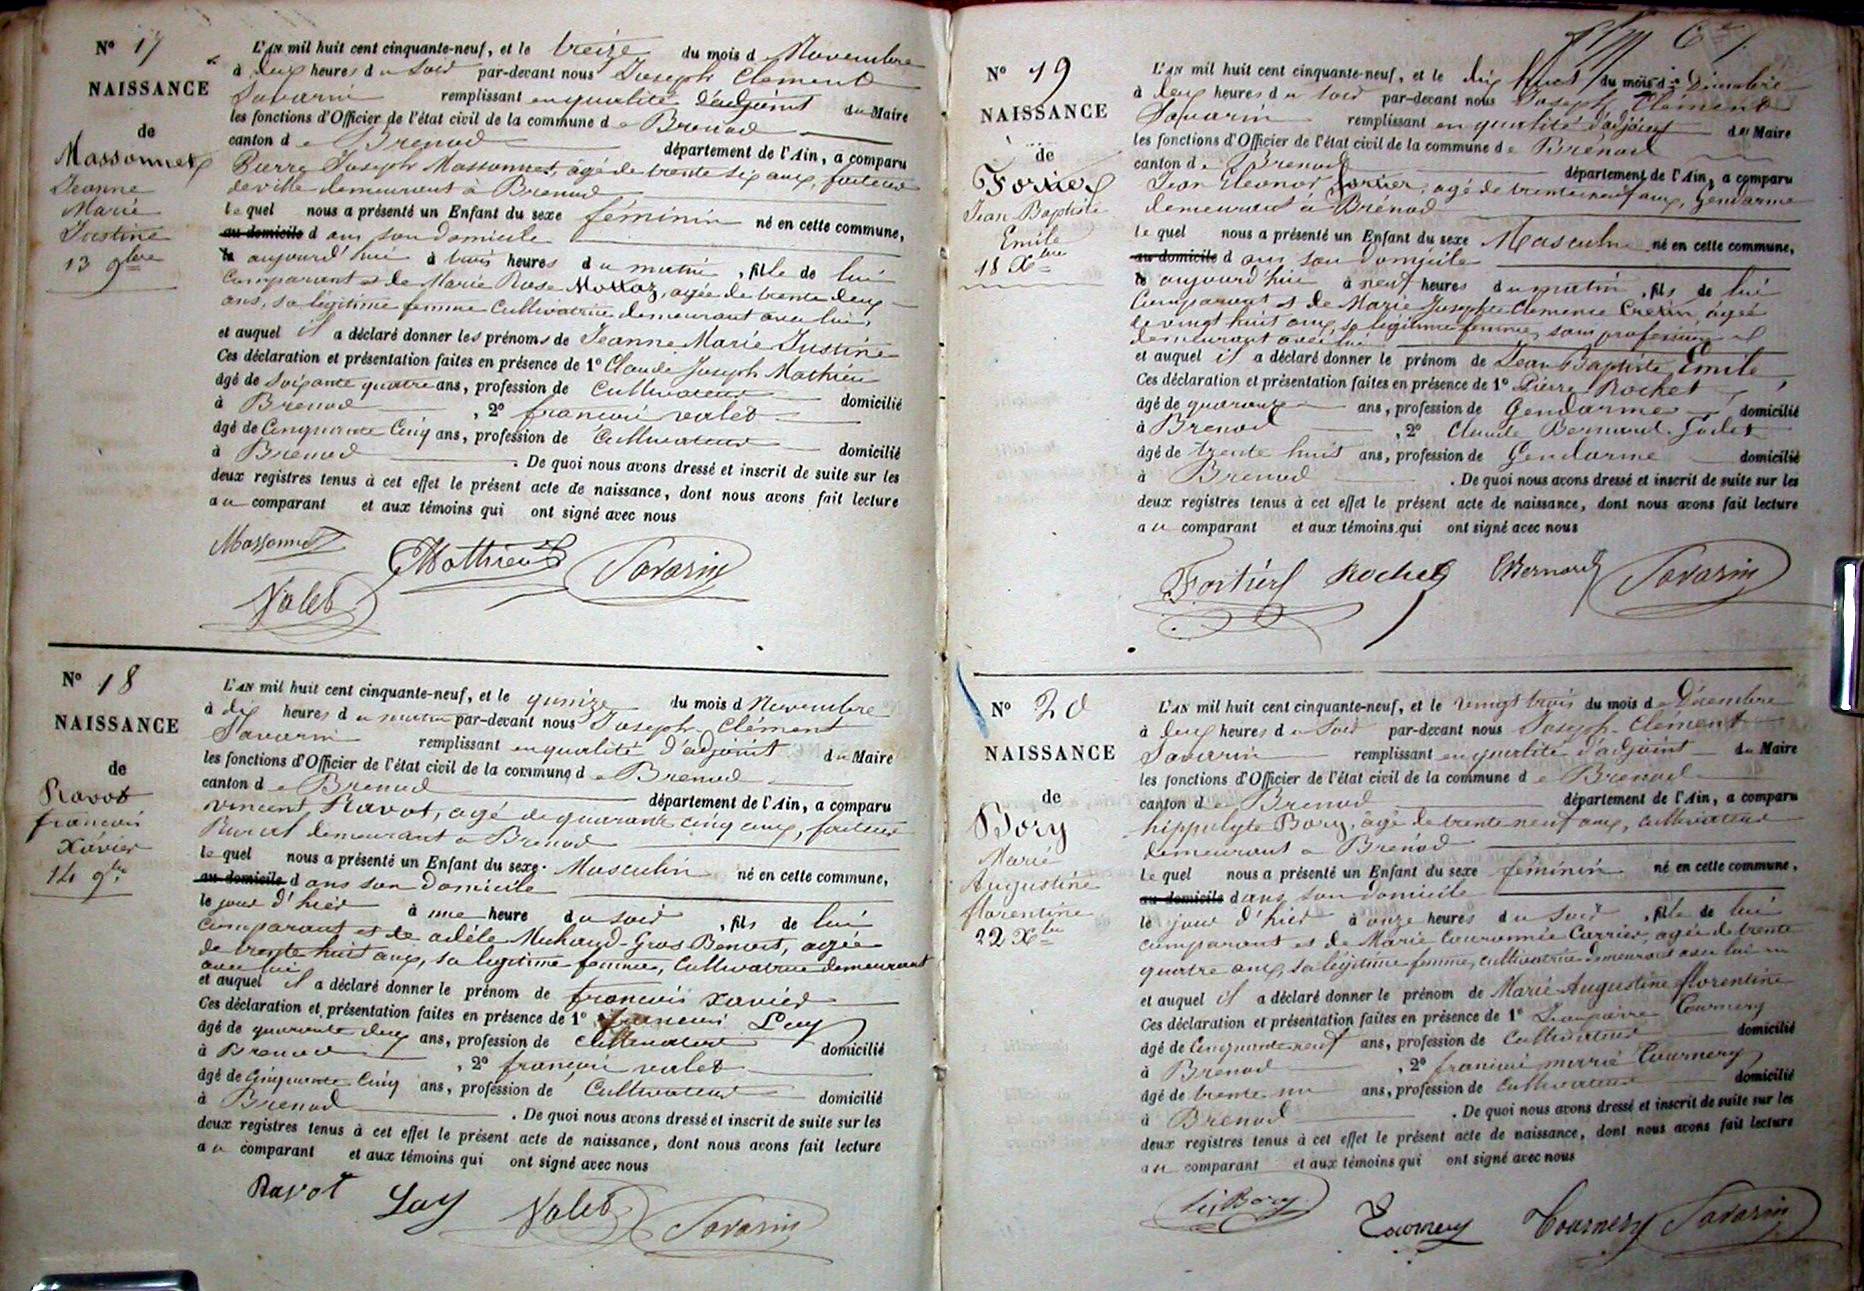 N° 17
NAISSANCE
de
Massonnet
Jeanne
Marie
Justine
13 9bre
L'AN mil huit cent cinquante-neuf, et le treize du mois d Novembre
à deux heures d u soir par-devant nous Joseph Clément
Savarin remplissant en qualité d'adjoint du Maire
les fonctions d'Officier de l'état civil de la commune d e Brenod
canton d e Brenod département de l'Ain, a comparu
Pierre Joseph Massonnet, âgé de trente six ans, facteur
de ville demeurant à Brenod
le quel nous a présenté un Enfant du sexe féminin né en cette commune,
au domicile d ans son domicile
aujourd'hui à trois heures d u matin, fille de lui
comparant et de Marie Rose Mottaz, agée de trente deux
ans, sa légitime femme Cultivatrice demeurant avec lui,
et auquel il a déclaré donner les prénoms de Jeanne Marie Justine
Ces déclaration et présentation faites en présence de 1° Claude Joseph Mathieu
âgé de soixante quatre ans, profession de Cultivateur domicilié
à Brenod, 2° françois valet
âgé de Cinquante Cinq ans, profession de Cultivateur domicilié
à Brenod. De quoi nous avons dressé et inscrit de suite sur les
deux registres tenus à cet effet le présent acte de naissance, dont nous avons fait lecture
a u comparant et aux témoins qui ont signé avec nous
Massonnet Mathieu Savarin
Valet
N° 18
NAISSANCE
de
Ravot
françois
Xavier
14 9bre
L'AN mil huit cent cinquante-neuf, et le quinze du mois d Novembre
à dix heures d u matin par-devant nous Joseph Clément
Savarin remplissant en qualité d'adjoint du Maire
les fonctions d'Officier de l'état civil de la commune d e Brenod
canton d e Brenod département de l'Ain, a comparu
vincent Ravot, agé de quarante cinq ans, facteur
Rural demeurant à Brenod
le quel nous a présenté un Enfant du sexe Masculin né en cette commune,
au domicile d ans son domicile
le jour d'hier à une heure d u soir, fils de lui
comparant et de adèle Michaud-Gros Benoit, agée
de trente huit ans, sa légitime femme, Cultivatrice demeurant
avec lui
et auquel il a déclaré donner le prénom de françois xavier
Ces déclaration et présentation faites en présence de 1° francois Lay
âgé de quarante deux ans, profession de Cultivateur domicilié
à Brenod, 2° françois valet
âgé de Cinquante Cinq ans, profession de Cultivateur domicilié
à Brenod. De quoi nous avons dressé et inscrit de suite sur les
deux registres tenus à cet effet le présent acte de naissance, dont nous avons fait lecture
a u comparant et aux témoins qui ont signé avec nous
Ravot Lay Valet Savarin
N° 19
NAISSANCE
de
Forier
Jean Baptiste
Emile
18 Xbre
L'AN mil huit cent cinquante-neuf, et le dix huit du mois de Décembre
à deux heures d u soir par-devant nous Joseph Clément
Savarin remplissant en qualité d'adjoint du Maire
les fonctions d'Officier de l'état civil de la commune d e Brenod
canton d e Brenod département de l'Ain, a comparu
Jean Eléonor forier, agé de trente neuf ans, Gendarme
demeurant à Brénod
le quel nous a présenté un Enfant du sexe Masculin né en cette commune,
au domicile d ans son domicile
aujourd'hui à neuf heures d u matin, fils de lui
Comparant et de Marie Josephte Clémence Cretin, âgée
de vingt huit ans, sa légitime femme, sans profession et
demeurant avec lui
et auquel il a déclaré donner le prénom de Jean Baptiste Emile
Ces déclaration et présentation faites en présence de 1° Pierre Rochet
âgé de quarante ans, profession de Gendarme domicilié
à Brenod, 2° Claude Bernard
âgé de trente huit ans, profession de Gendarme domicilié
à Brenod. De quoi nous avons dressé et inscrit de suite sur les
deux registres tenus à cet effet le présent acte de naissance, dont nous avons fait lecture
a u comparant et aux témoins qui ont signé avec nous
Rochet CBernard Savarin
N° 20
NAISSANCE
de
Bory
Marie
Augustine
florentine
22 Xbre
L'AN mil huit cent cinquante-neuf, et le vingt trois du mois d e Décembre
à deux heures d u soir par-devant nous Joseph Clément
Savarin remplissant en qualité d'adjoint du Maire
les fonctions d'Officier de l'état civil de la commune d e Brenod
canton d e Brenod département de l'Ain, a comparu
hippolyte Bory, agé de trente neuf ans, cultivateur
demeurant à Brénod
le quel nous a présenté un Enfant du sexe féminin né en cette commune,
au domicile dans son domicile
le jour d'hier à onze heures d u soir, fille de lui
comparant et de Marie Couronnée Carrier, agée de trente
quatre ans, sa légitime femme, cultivatrice demeurant avec lui
et auquel il a déclaré donner le prénom de Marie Augustine florentine
Ces déclaration et présentation faites en présence de 1° Jean pierre Tournery
âgé de Cinquante neuf ans, profession de Cultivateur domicilié
à Brenod, 2° françois marie Tournery
âgé de trente un ans, profession de Cultivateur domicilié
à Brenod. De quoi nous avons dressé et inscrit de suite sur les
deux registres tenus à cet effet le présent acte de naissance, dont nous avons fait lecture
a u comparant et aux témoins qui ont signé avec nous
Bory Tournery Tournery Savarin